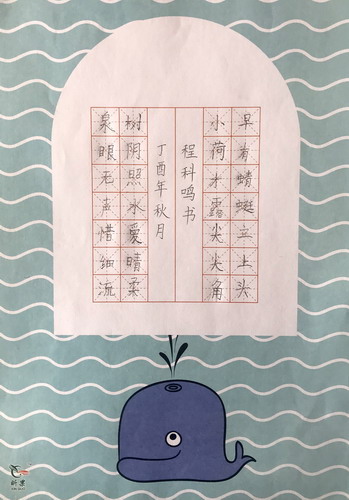 泉眼无声惜细流
树阴照水爱晴柔
丁酉年秋月
程科鸣书
小荷才露尖尖角
早有蜻蜓立上头